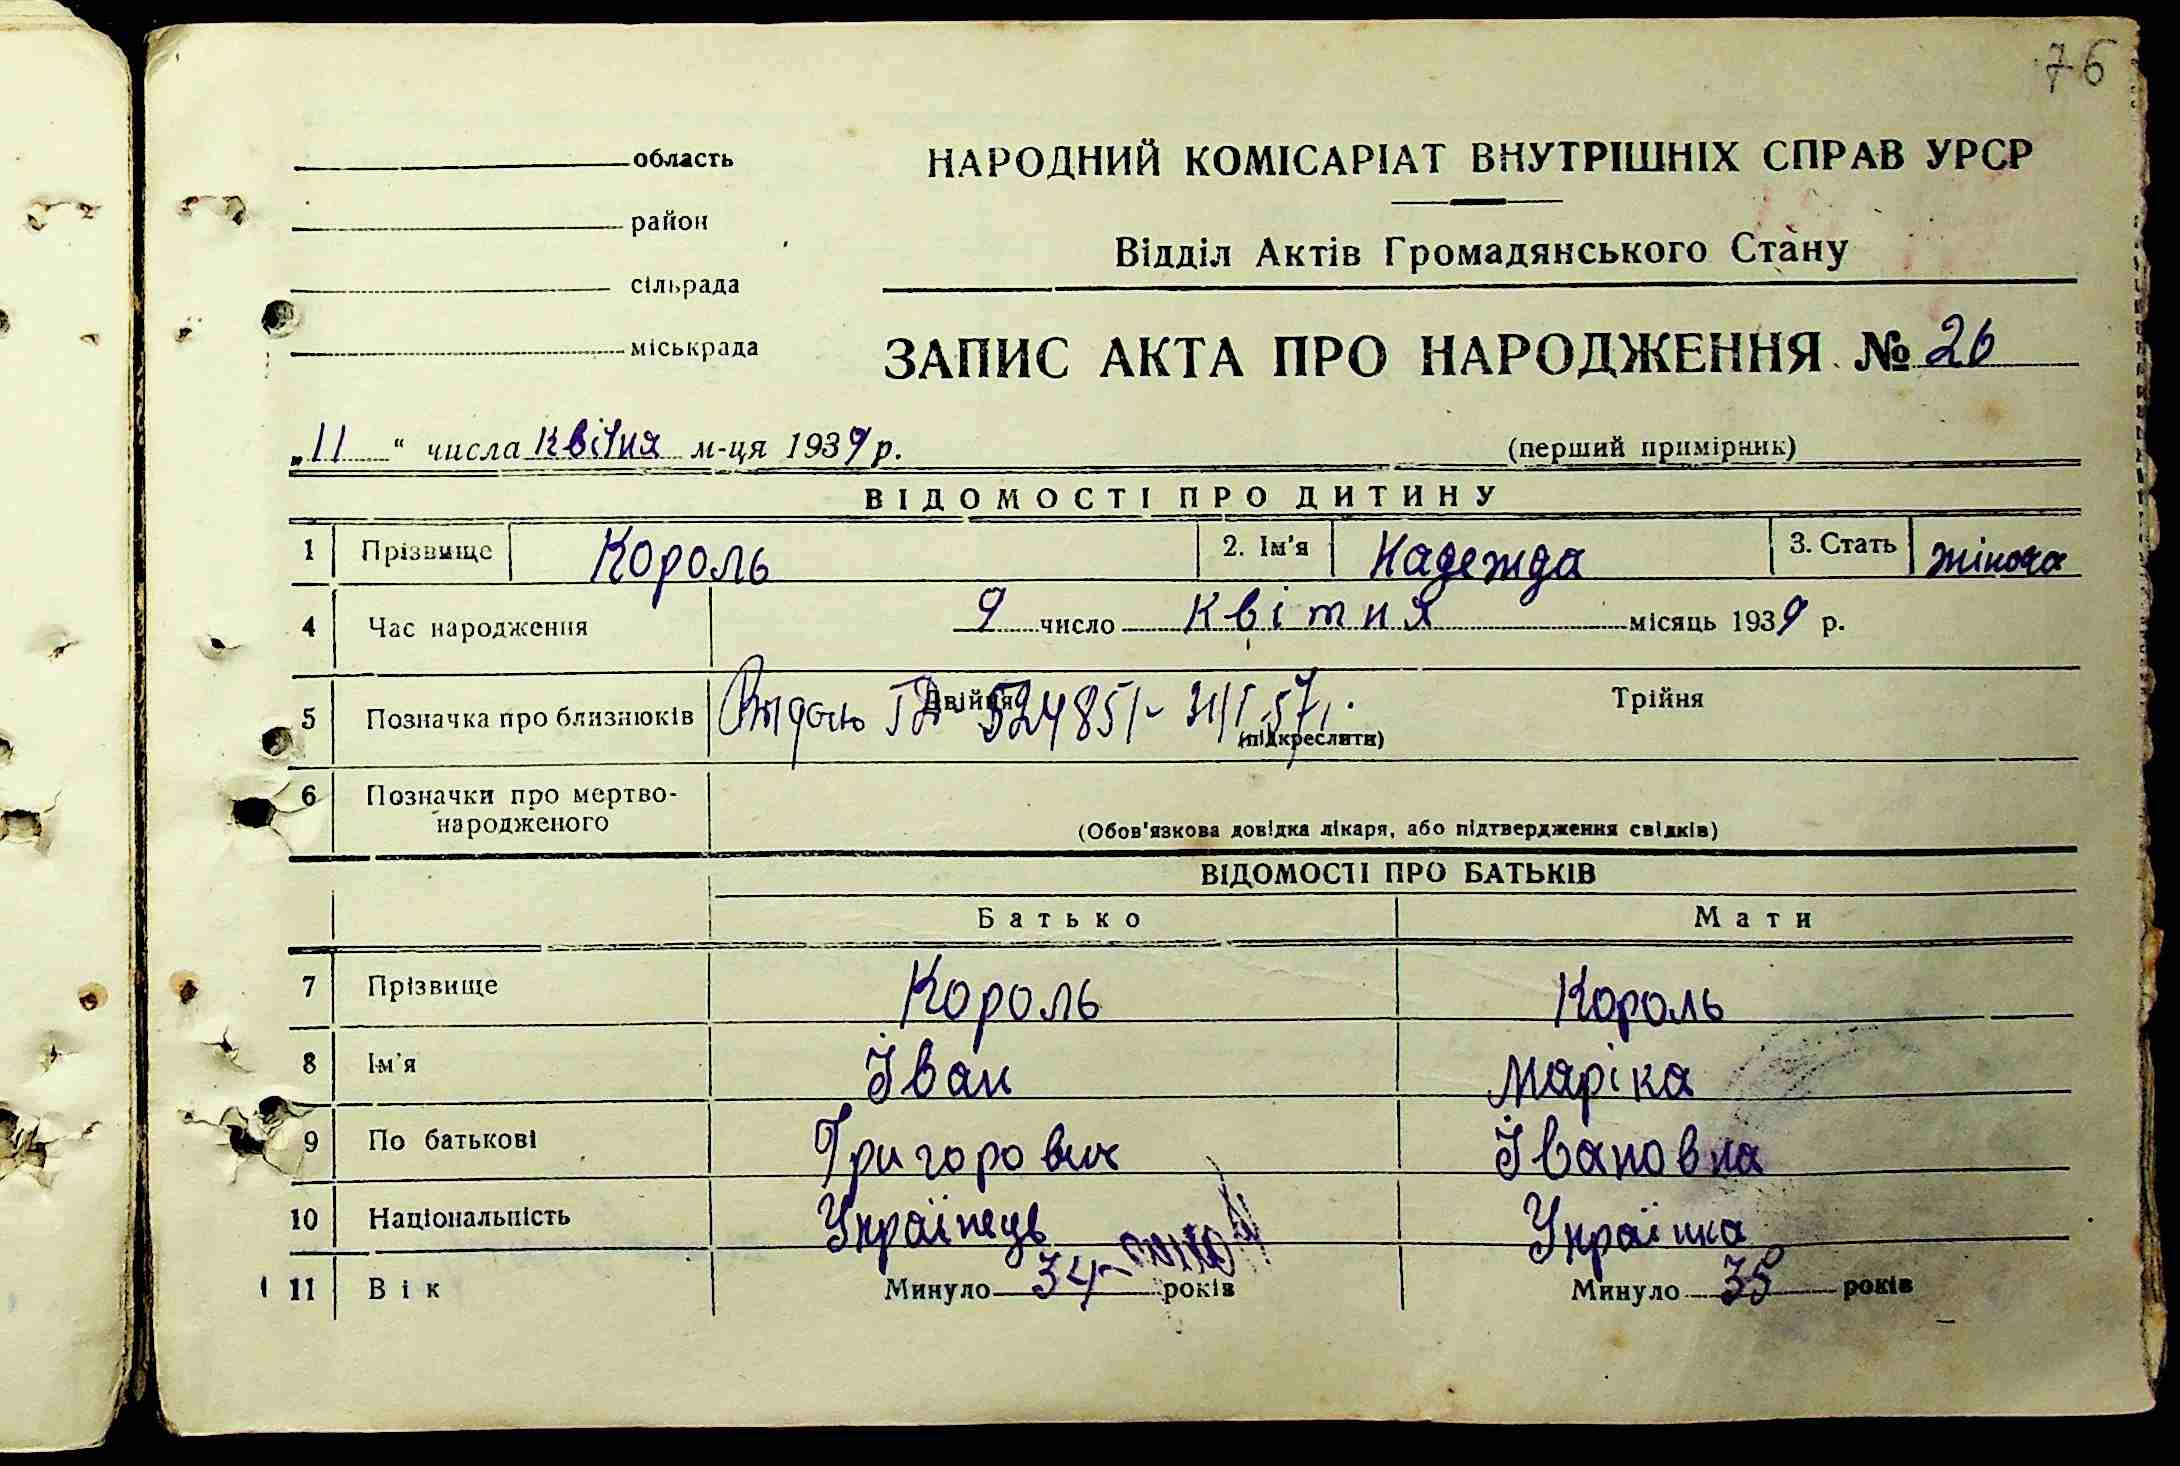 76
область
район
сільрада
міськрада
НАРОДНИЙ КОМІСАРІАТ ВНУТРІШНІХ СПРАВ УРСР
Відділ Актів Громадянського Стану
ЗАПИС АКТА ПРО НАРОДЖЕННЯ № 26
„11“ числа Квітня м-ця 1939 р.
(перший примірник)
ВІДОМОСТІ ПРО ДИТИНУ
1 Прізвище Король 2. Ім'я Надежда 3. Стать жіноча
4 Час народження 9 число Квітня місяць 1939 р.
5 Позначка про близнюків Двійня Трійня
524851
(підкреслити)
6 Позначки про мертво-
народженого
(Обов'язкова довідка лікаря, або підтвердження свідків)
ВІДОМОСТІ ПРО БАТЬКІВ
Батько Мати
7 Прізвище Король Король
8 Ім'я Іван Маріка
9 По батькові Григорович Івановна
10 Національність Українець Українка
11 Вік Минуло 34 років Минуло 35 років